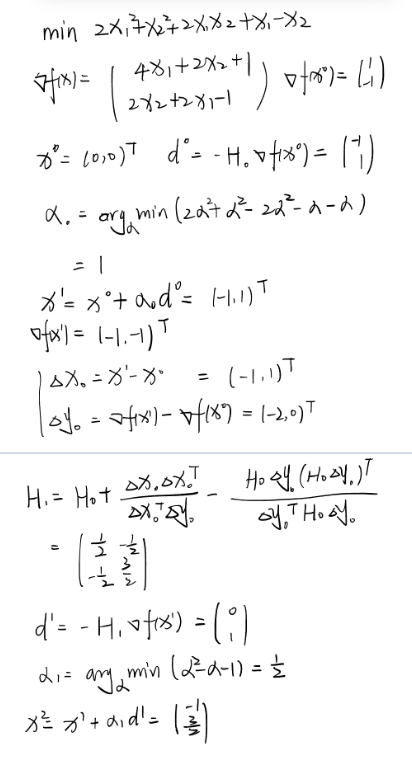 min 2x₁²+x₂²+2x₁x₂+x₁-x₂
∇f(x)= ( 4x₁+2x₂+1 2x₂+2x₁-1 ) ∇f(x⁰)= ( 1 -1 )
x⁰= (0,0)ᵀ d⁰= -H₀∇f(x⁰)= ( -1 1 )
α₀ = argminα (2α²+α²-2α²-α-α)
= 1
x¹= x⁰+α₀d⁰= (-1,1)ᵀ
∇f(x¹)= (-1,-1)ᵀ
Δx₀ = x¹-x⁰ = (-1,1)ᵀ
Δy₀ = ∇f(x¹)-∇f(x⁰) = (-2,0)ᵀ
H₁= H₀+ Δx₀Δx₀ᵀ / Δx₀ᵀΔy₀ - H₀Δy₀(H₀Δy₀)ᵀ / Δy₀ᵀH₀Δy₀
= ( 1/2 -1/2 -1/2 3/2 )
d¹= -H₁∇f(x¹) = ( 0 1 )
α₁= argminα (α²-α-1) = 1/2
x²= x¹+α₁d¹= ( -1 3/2 )